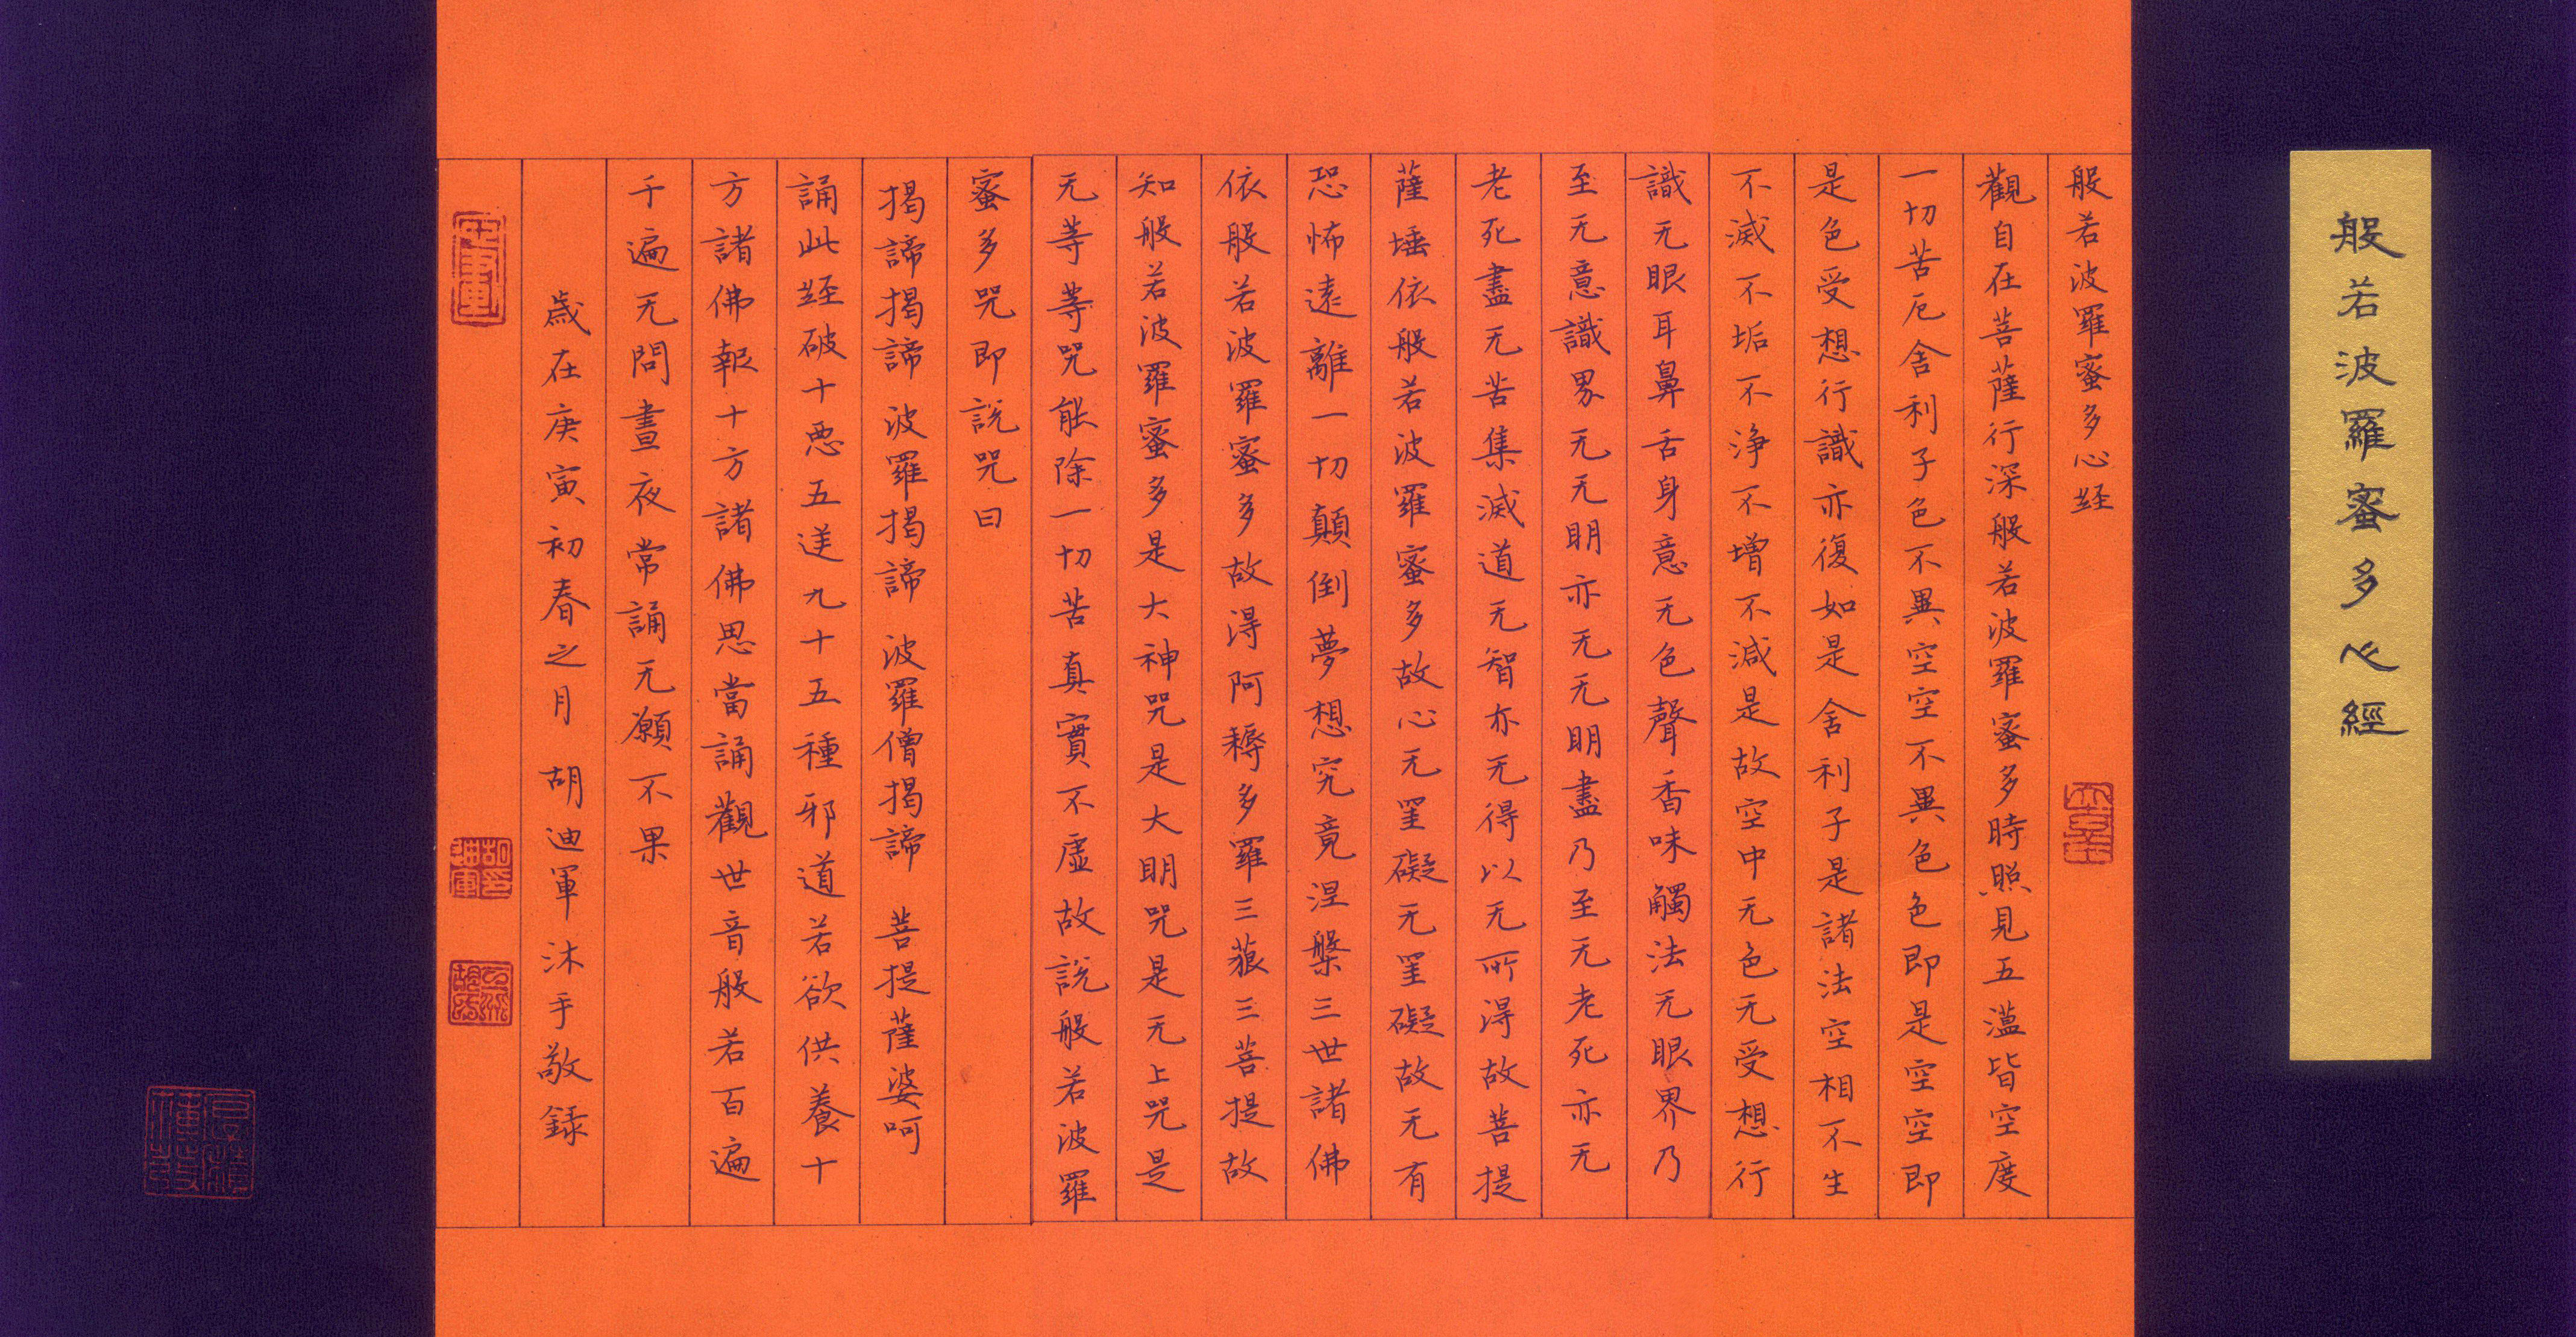 般若波羅蜜多心經
般若波羅蜜多心経
觀自在菩薩行深般若波羅蜜多時照見五蕰皆空度
一切苦厄舍利子色不異空空不異色色即是空空即
是色受想行識亦復如是舍利子是諸法空相不生
不滅不垢不淨不增不減是故空中无色无受想行
識无眼耳鼻舌身意无色聲香味觸法无眼界乃
至无意識界无无明亦无无明盡乃至无老死亦无
老死盡无苦集滅道无智亦无得以无所得故菩提
薩埵依般若波羅蜜多故心无罣礙无罣礙故无有
恐怖遠離一切顛倒夢想究竟涅槃三世諸佛
依般若波羅蜜多故得阿耨多羅三藐三菩提故
知般若波羅蜜多是大神咒是大明咒是无上咒是
无等等咒能除一切苦真實不虛故說般若波羅
蜜多咒即說咒曰
揭諦揭諦 波羅揭諦 波羅僧揭諦 菩提薩婆呵
誦此経破十惡五逆九十五種邪道若欲供養十
方諸佛報十方諸佛恩當誦觀世音般若百遍
千遍无問晝夜常誦无願不果
歲在庚寅初春之月 胡迪軍沐手敬録